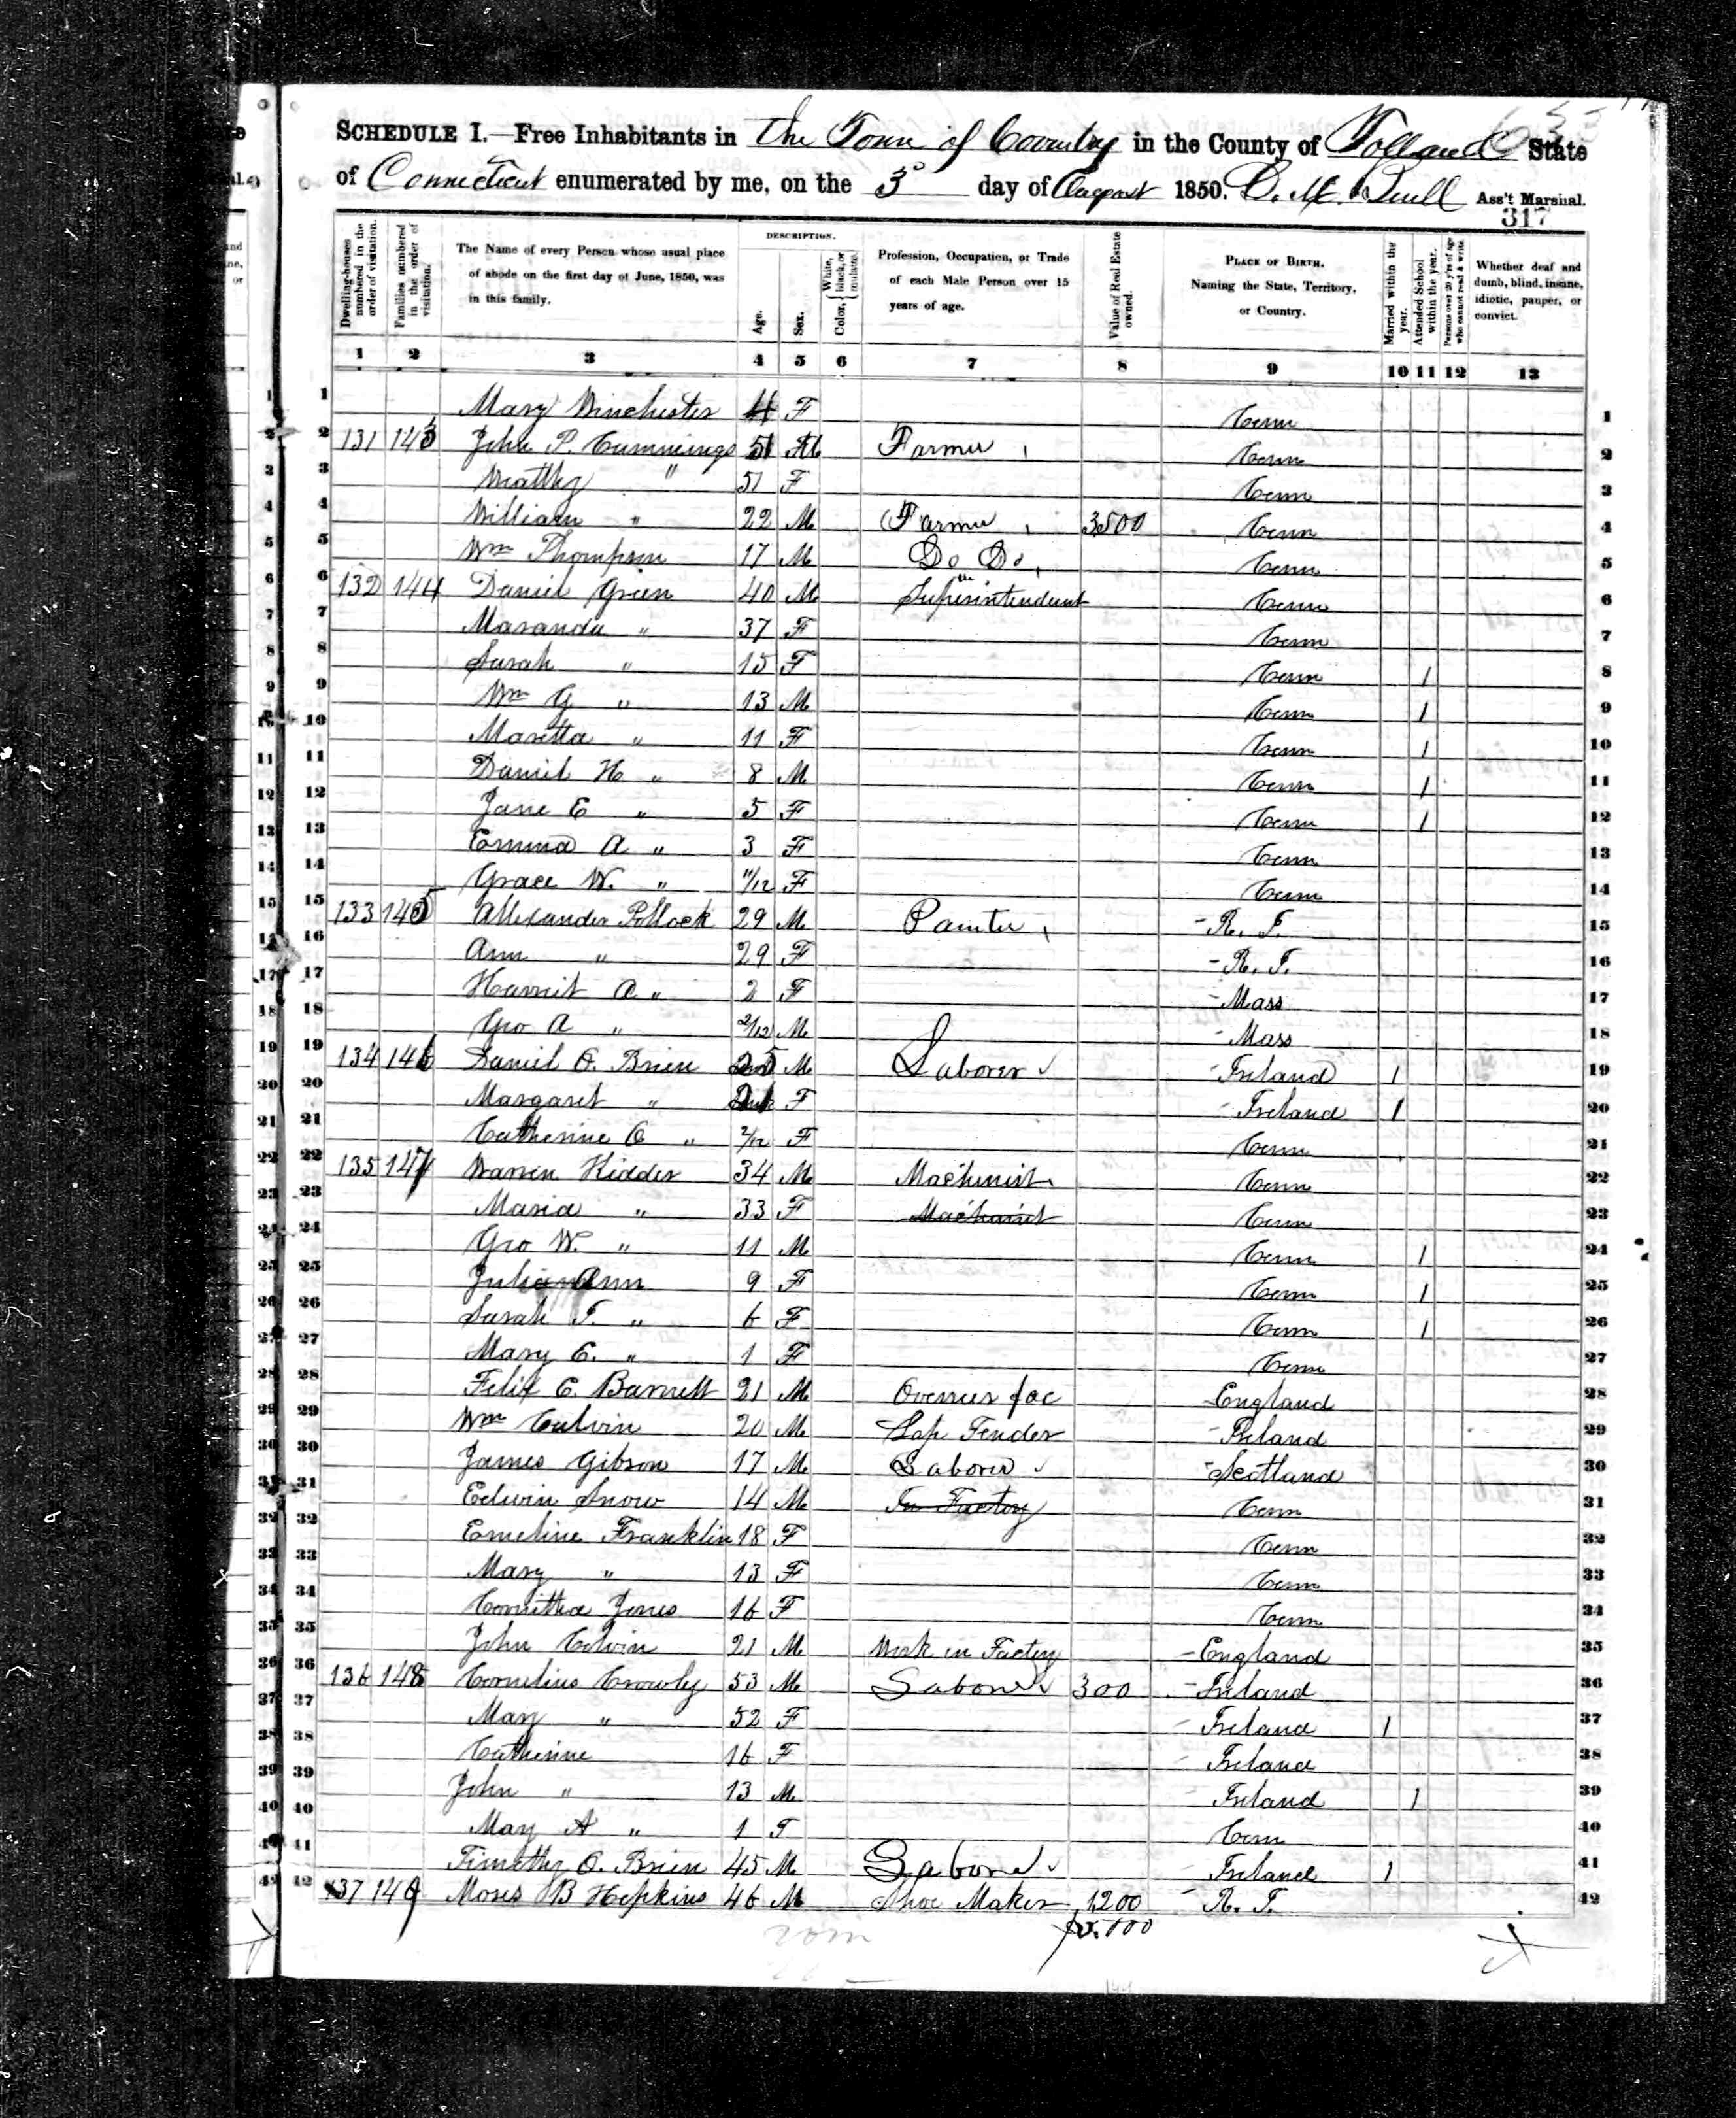 SCHEDULE I.—Free Inhabitants in the Town of Coventry in the County of Tolland State
of Connecticut enumerated by me, on the 5 day of August 1850. Ass't Marshal.
317
Dwelling-houses numbered in the order of visitation.
Families numbered in the order of visitation.
The Name of every Person whose usual place of abode on the first day of June, 1850, was in this family.
DESCRIPTION.
Age.
Sex.
Color, { White, black, or mulatto.
Profession, Occupation, or Trade of each Male Person over 15 years of age.
Value of Real Estate owned.
PLACE OF BIRTH. Naming the State, Territory, or Country.
Married within the year.
Attended School within the year.
Persons over 20 y'rs of age who cannot read & write.
Whether deaf and dumb, blind, insane, idiotic, pauper, or convict.
1 2 3 4 5 6 7 8 9 10 11 12 13
1 Mary Winchester 4 F Conn 1
2 131 143 John P. Cummings 51 M Farmer Conn 2
3 " 51 F Conn 3
4 William " 22 M Farmer 3500 Conn 4
5 Wm Thompson 17 M Do Do Conn 5
6 132 144 Daniel Green 40 M Superintendent Conn 6
7 Maranda " 37 F Conn 7
8 Sarah " 15 F Conn 1 8
9 Wm G " 13 M Conn 1 9
10 Maretta " 11 F Conn 1 10
11 Daniel H " 8 M Conn 1 11
12 Jane E " 5 F Conn 1 12
13 Emma A " 3 F Conn 13
14 Grace W. " 11/12 F Conn 14
15 133 145 Allexander Pollock 29 M Painter - R. I. 15
16 Ann " 29 F - R. I. 16
17 Harriet A " 2 F - Mass 17
18 Geo A " 2/12 M - Mass 18
19 134 146 Daniel O. Brien 25 M Laborer - Ireland 1 19
20 Margaret " F - Ireland 1 20
21 Catherine O " 2/12 F Conn 21
22 135 147 Warren Kidder 34 M Machinist Conn 22
23 Maria " 33 F Machinist Conn 23
24 Geo W. " 11 M Conn 1 24
25 Julia Ann 9 F Conn 1 25
26 Sarah T. " 6 F Conn 1 26
27 Mary E. " 1 F Conn 27
28 Felix C. Barnett 21 M Overseer fac - England 28
29 Wm Culvin 20 M Lap Tender - Ireland 29
30 James Gibson 17 M Laborer - Scotland 30
31 Edwin Snow 14 M In Factory Conn 31
32 Emeline Franklin 18 F Conn 32
33 Mary " 13 F Conn 33
34 Jones 16 F Conn 34
35 John Colvin 21 M Work in Factory - England 35
36 136 148 Cornelius Crowly 53 M Laborer 300 - Ireland 36
37 Mary " 52 F - Ireland 1 37
38 Catherine 16 F - Ireland 38
39 John " 13 M - Ireland 1 39
40 Mary A " 1 F Conn 40
41 Timothy O. Brien 45 M Laborer - Ireland 1 41
42 137 149 Moses B Hopkins 46 M Shoe Maker 1200 - R. I. 42